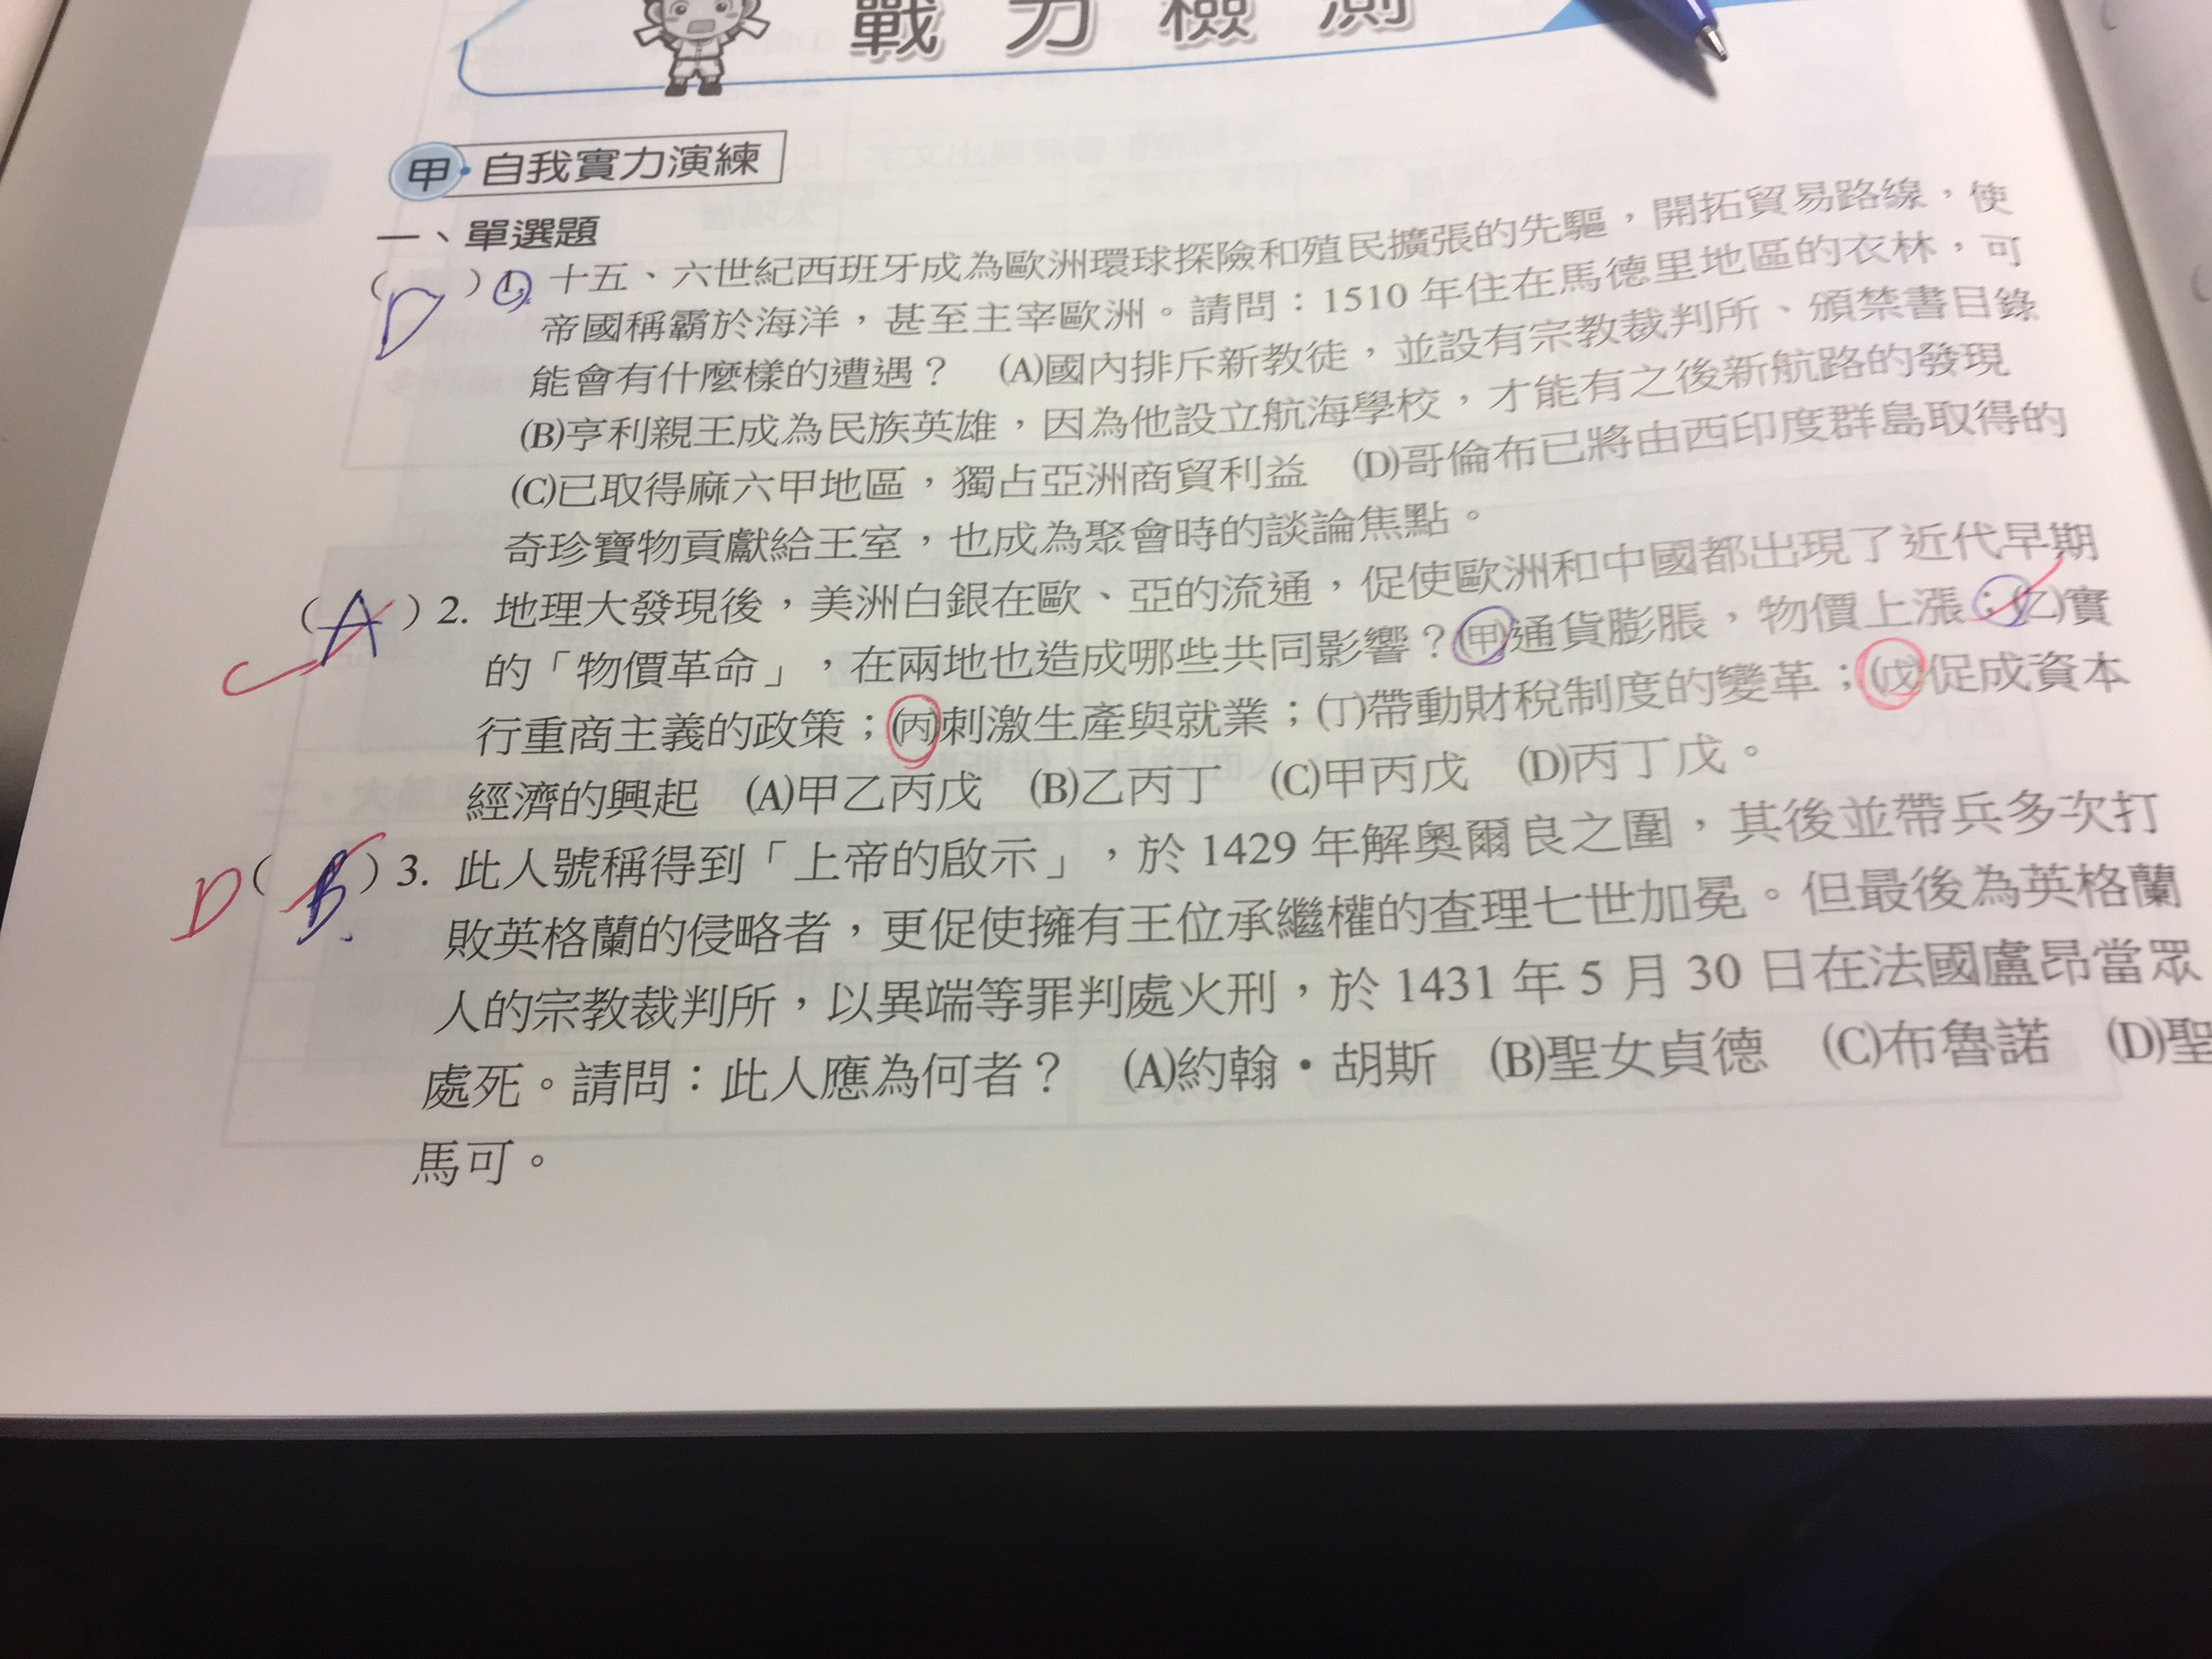 戰力檢測
甲·自我實力演練
一、單選題
( D )1. 十五、六世紀西班牙成為歐洲環球探險和殖民擴張的先驅，開拓貿易路線，使
帝國稱霸於海洋，甚至主宰歐洲。請問：1510 年住在馬德里地區的衣林，可
能會有什麼樣的遭遇？ (A)國內排斥新教徒，並設有宗教裁判所、頒禁書目錄
(B)亨利親王成為民族英雄，因為他設立航海學校，才能有之後新航路的發現
(C)已取得麻六甲地區，獨占亞洲商貿利益 (D)哥倫布已將由西印度群島取得的
奇珍寶物貢獻給王室，也成為聚會時的談論焦點。
( A )2. 地理大發現後，美洲白銀在歐、亞的流通，促使歐洲和中國都出現了近代早期
的「物價革命」，在兩地也造成哪些共同影響？(甲)通貨膨脹，物價上漲；(乙)實
行重商主義的政策；(丙)刺激生產與就業；(丁)帶動財稅制度的變革；(戊)促成資本
經濟的興起 (A)甲乙丙戊 (B)乙丙丁 (C)甲丙戊 (D)丙丁戊。
D( B )3. 此人號稱得到「上帝的啟示」，於 1429 年解奧爾良之圍，其後並帶兵多次打
敗英格蘭的侵略者，更促使擁有王位承繼權的查理七世加冕。但最後為英格蘭
人的宗教裁判所，以異端等罪判處火刑，於 1431 年 5 月 30 日在法國盧昂當眾
處死。請問：此人應為何者？ (A)約翰·胡斯 (B)聖女貞德 (C)布魯諾 (D)聖
馬可。